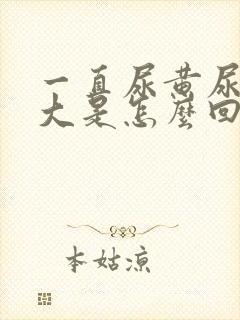 一直尿黄尿
大是怎麼回
本姑凉